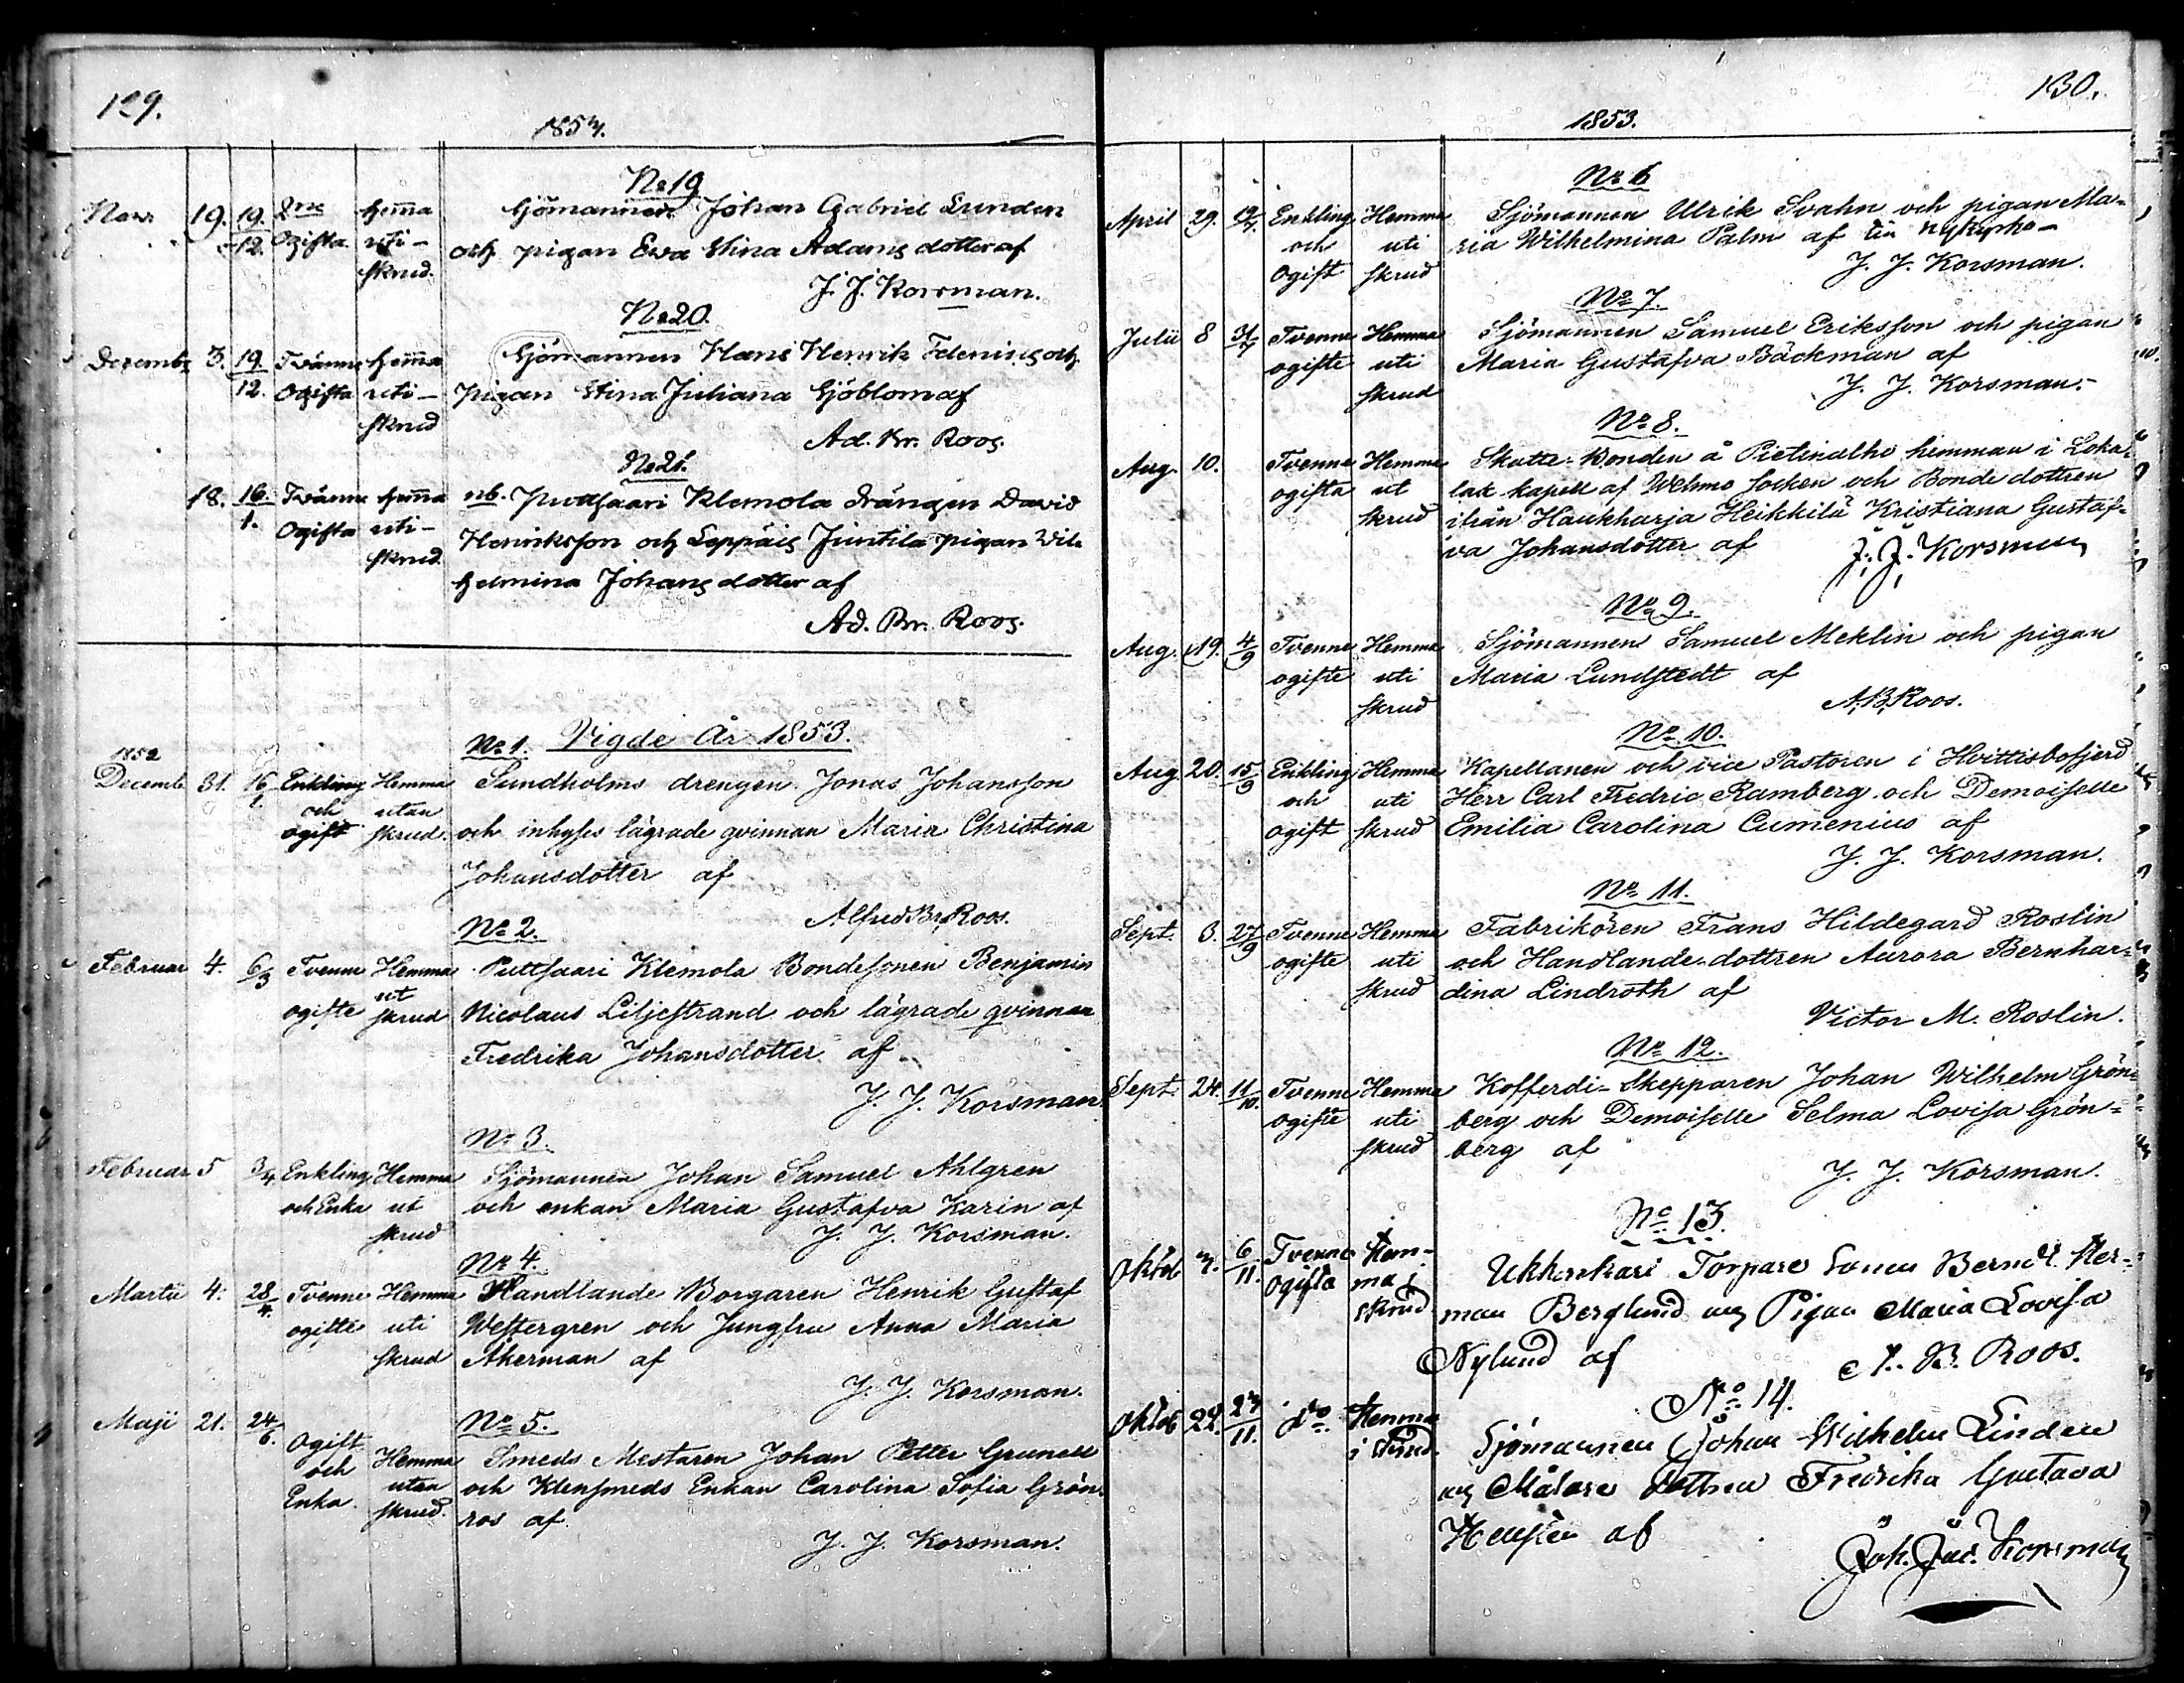 129.
No 19
Novr 19. 19/12. 2ne Ogifta hem̄a uti- skrud. Sjömannen Johan Gabriel Lunden
och pigan Ewa Stina Adams dotter af
J. J. Korsman.
No 20.
Decembr 3. 19/12. Tvänne Ogifta hem̄a uti- skrud Sjömannen Hans Henrik och
pigan Stina Juliana Sjöblom af
Ad. Br. Roos.
No 21.
18. 16/1. Tvänne Ogifta hem̄a uti- skrud nb. Puttsaari Klemola drängen David
Henriksson och Leppäis Juntila pigan Wil-
helmina Johans dotter af
Ad. Br. Roos.
No 1. Vigde År 1853.
1852
Decemb. 31. 16/1. Enkling och ogift Hemma utan skrud. Sundholms drengen Jonas Johansson
och inhyses lägrade qvinnan Maria Christina
Johansdotter af
Alfred Br. Roos.
No 2.
Februar 4. 6/3 Tvenne ogifte Hemma ut skrud Puttsaari Klemola Bondesonen Benjamin
Nicolaus Liljestrand och lägrade qvinnan
Fredrika Johansdotter af
J. J. Korsman
No 3.
Februar 5 3/4 Enkling och Enka Hemma ut skrud Sjömannen Johan Samuel Ahlgren
och enkan Maria Gustafva Karin af
J. J. Korsman.
No 4.
Martii 4. 28/4. Tvenne ogifte Hemma uti skrud Handlande Borgaren Henrik Gustaf
Westergren och Jungfru Anna Maria
Åkerman af
J. J. Korsman.
No 5.
Maji 21. 24/6. Ogift och Enka. Hemma utan skrud. Smeds Mestaren Johan Petter Grunell
och Klensmeds Enkan Carolina Sofia Grön-
ros af
J. J. Korsman.
130.
1853.
No 6
April 29. Enkling och Ogift Hemma uti skrud Sjömannen Ulrik Svahn och pigan Ma-
ria Wilhelmina Palm af
J. J. Korsman.
No 7.
Julii 8 31/7 Tvenne ogifte Hemma uti skrud Sjömannen Samuel Eriksson och pigan
Maria Gustafva Bäckman af
J. J. Korsman.
No 8.
Aug. 10. Tvenne ogifta Hemma ut skrud Skatte-Bonden å Pietinalho hemman i Loka-
lax kapell af Wehmo socken och Bonde dottren
ifrån Haukharja Heikkilä Kristiana Gustaf-
va Johansdotter af J. J. Korsman
No 9.
Aug. 19. 4/9 Tvenne ogifte Hemma uti skrud Sjömannen Samuel Meklin och pigan
Maria Lundstedt af
A. B. Roos.
No 10.
Aug 20. 15/9 Enkling och ogift Hemma uti skrud Kapellanen och vice Pastoren i Hvittisbofjerd
Herr Carl Fredric Ramberg och Demoiselle
Emilia Carolina Cumenius af
J. J. Korsman.
No 11.
Sept. 3. 27/9 Tvenne ogifte Hemma uti skrud Fabrikören Frans Hildegard Roslin
och Handlande-dottren Aurora Bernhar-
dina Lindroth af
Victor M. Roslin.
No 12.
Sept. 24. 11/10. Tvenne ogifte Hemma uti skrud Kofferdi-Skepparen Johan Wilhelm Grön-
berg och Demoiselle Selma Lovisa Grön-
berg af
J. J. Korsman.
No 13.
Oktob 7. 6/11. Tvenne Ogifta Hem- ma i skrud Torpare Sonen Berndt Her-
man Berglund och Pigan Maria Lovisa
Nylund af A. B. Roos.
No 14.
Oktob 22. 27/11. do. Hemma i skrud. Sjömannen Johan Wilhelm Linden
och Målare dottren Fredrika Gustava
af
Joh. Jac. Korsman